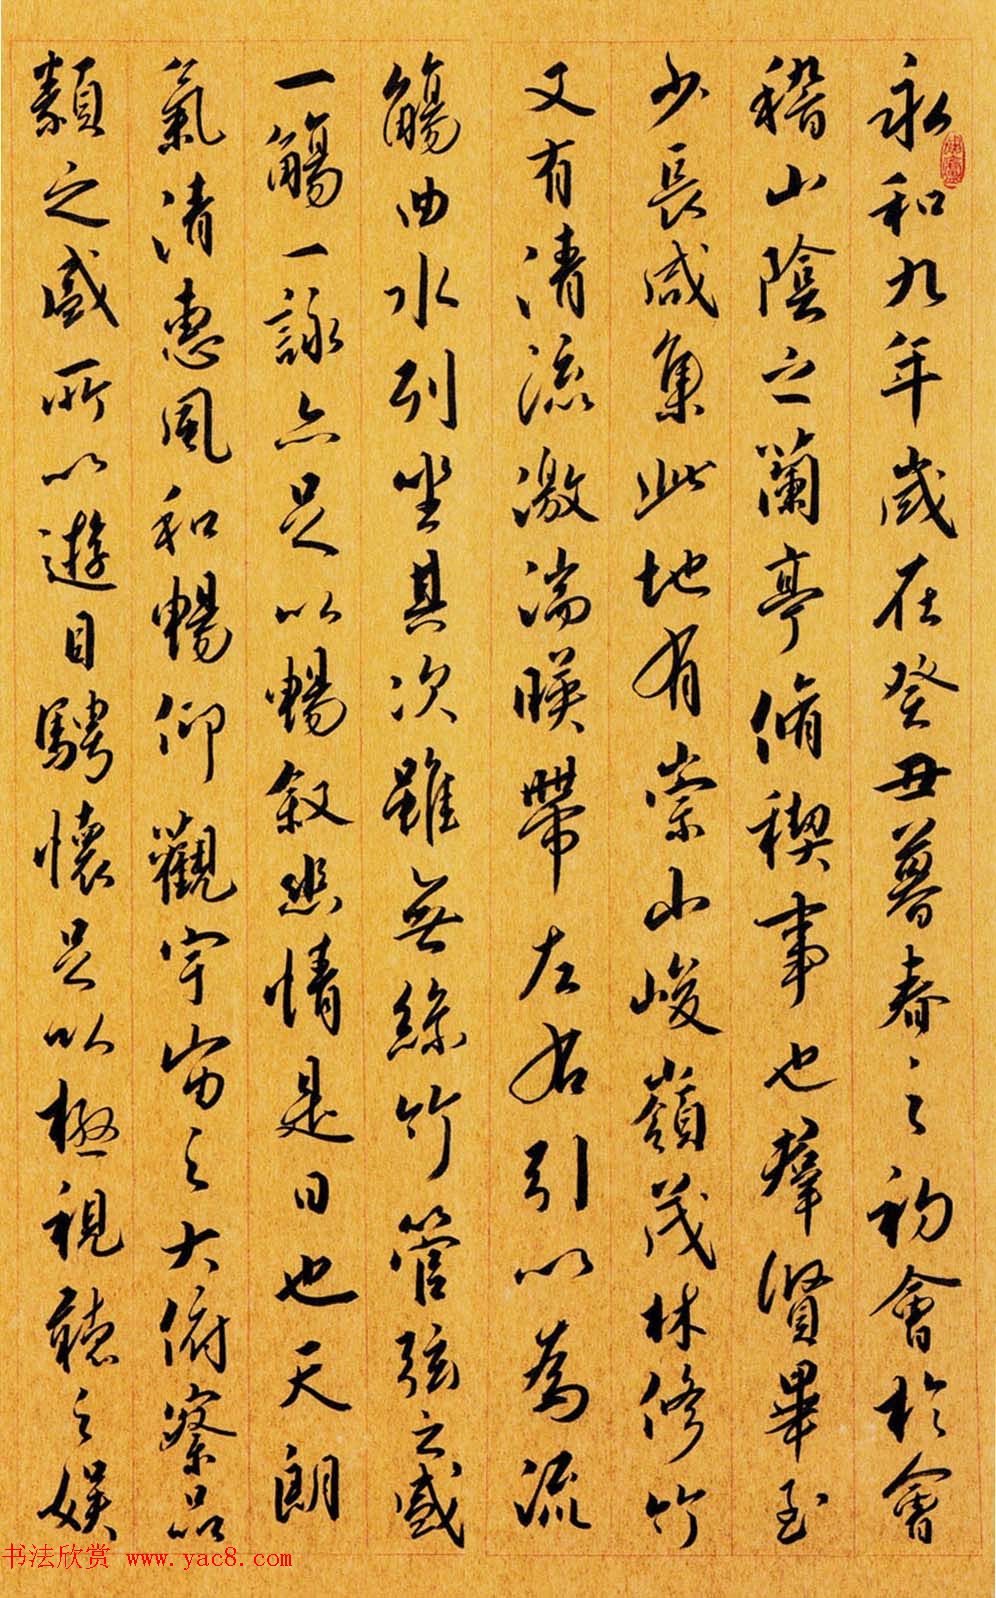 永和九年歲在癸丑暮春之初會於會
稽山陰之蘭亭脩稧事也羣賢畢至
少長咸集此地有崇山峻嶺茂林修竹
又有清流激湍暎帶左右引以為流
觴曲水列坐其次雖無絲竹管弦之盛
一觴一詠亦足以暢敘幽情是日也天朗
氣清惠風和暢仰觀宇宙之大俯察品
類之盛所以遊目騁懷足以極視聽之娛
书法欣赏 www.yac8.com